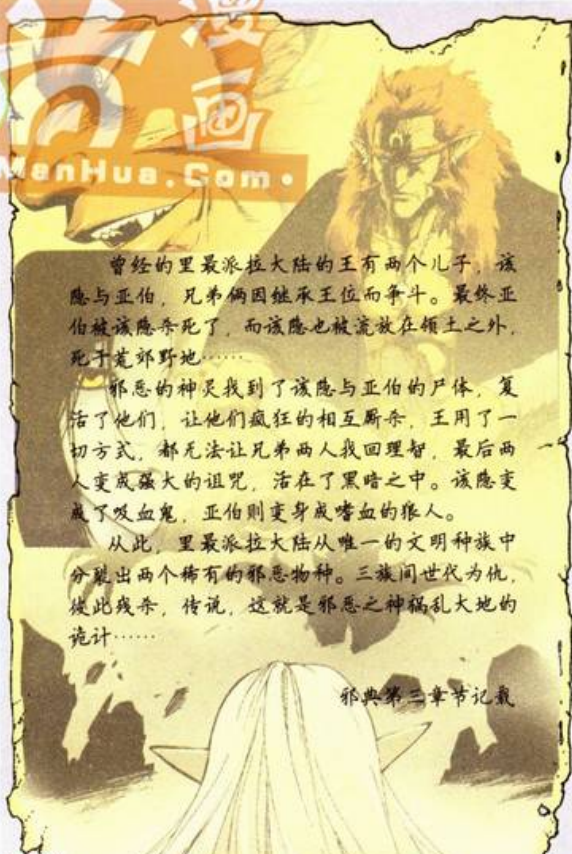 漫
画
ManHua.Com
曾经的里最派拉大陆的王有两个儿子，该
隐与亚伯，兄弟俩因继承王位而争斗。最终亚
伯被该隐杀死了，而该隐也被流放在领土之外，
死于荒郊野地……
邪恶的神灵找到了该隐与亚伯的尸体，复
活了他们，让他们疯狂的相互厮杀，王用了一
切方式，都无法让兄弟两人找回理智，最后两
人变成强大的诅咒，活在了黑暗之中。该隐变
成了吸血鬼，亚伯则变身成嗜血的狼人。
从此，里最派拉大陆从唯一的文明种族中
分裂出两个稀有的邪恶物种。三族间世代为仇，
彼此残杀，传说，这就是邪恶之神祸乱大地的
诡计……
邪典第三章节记载